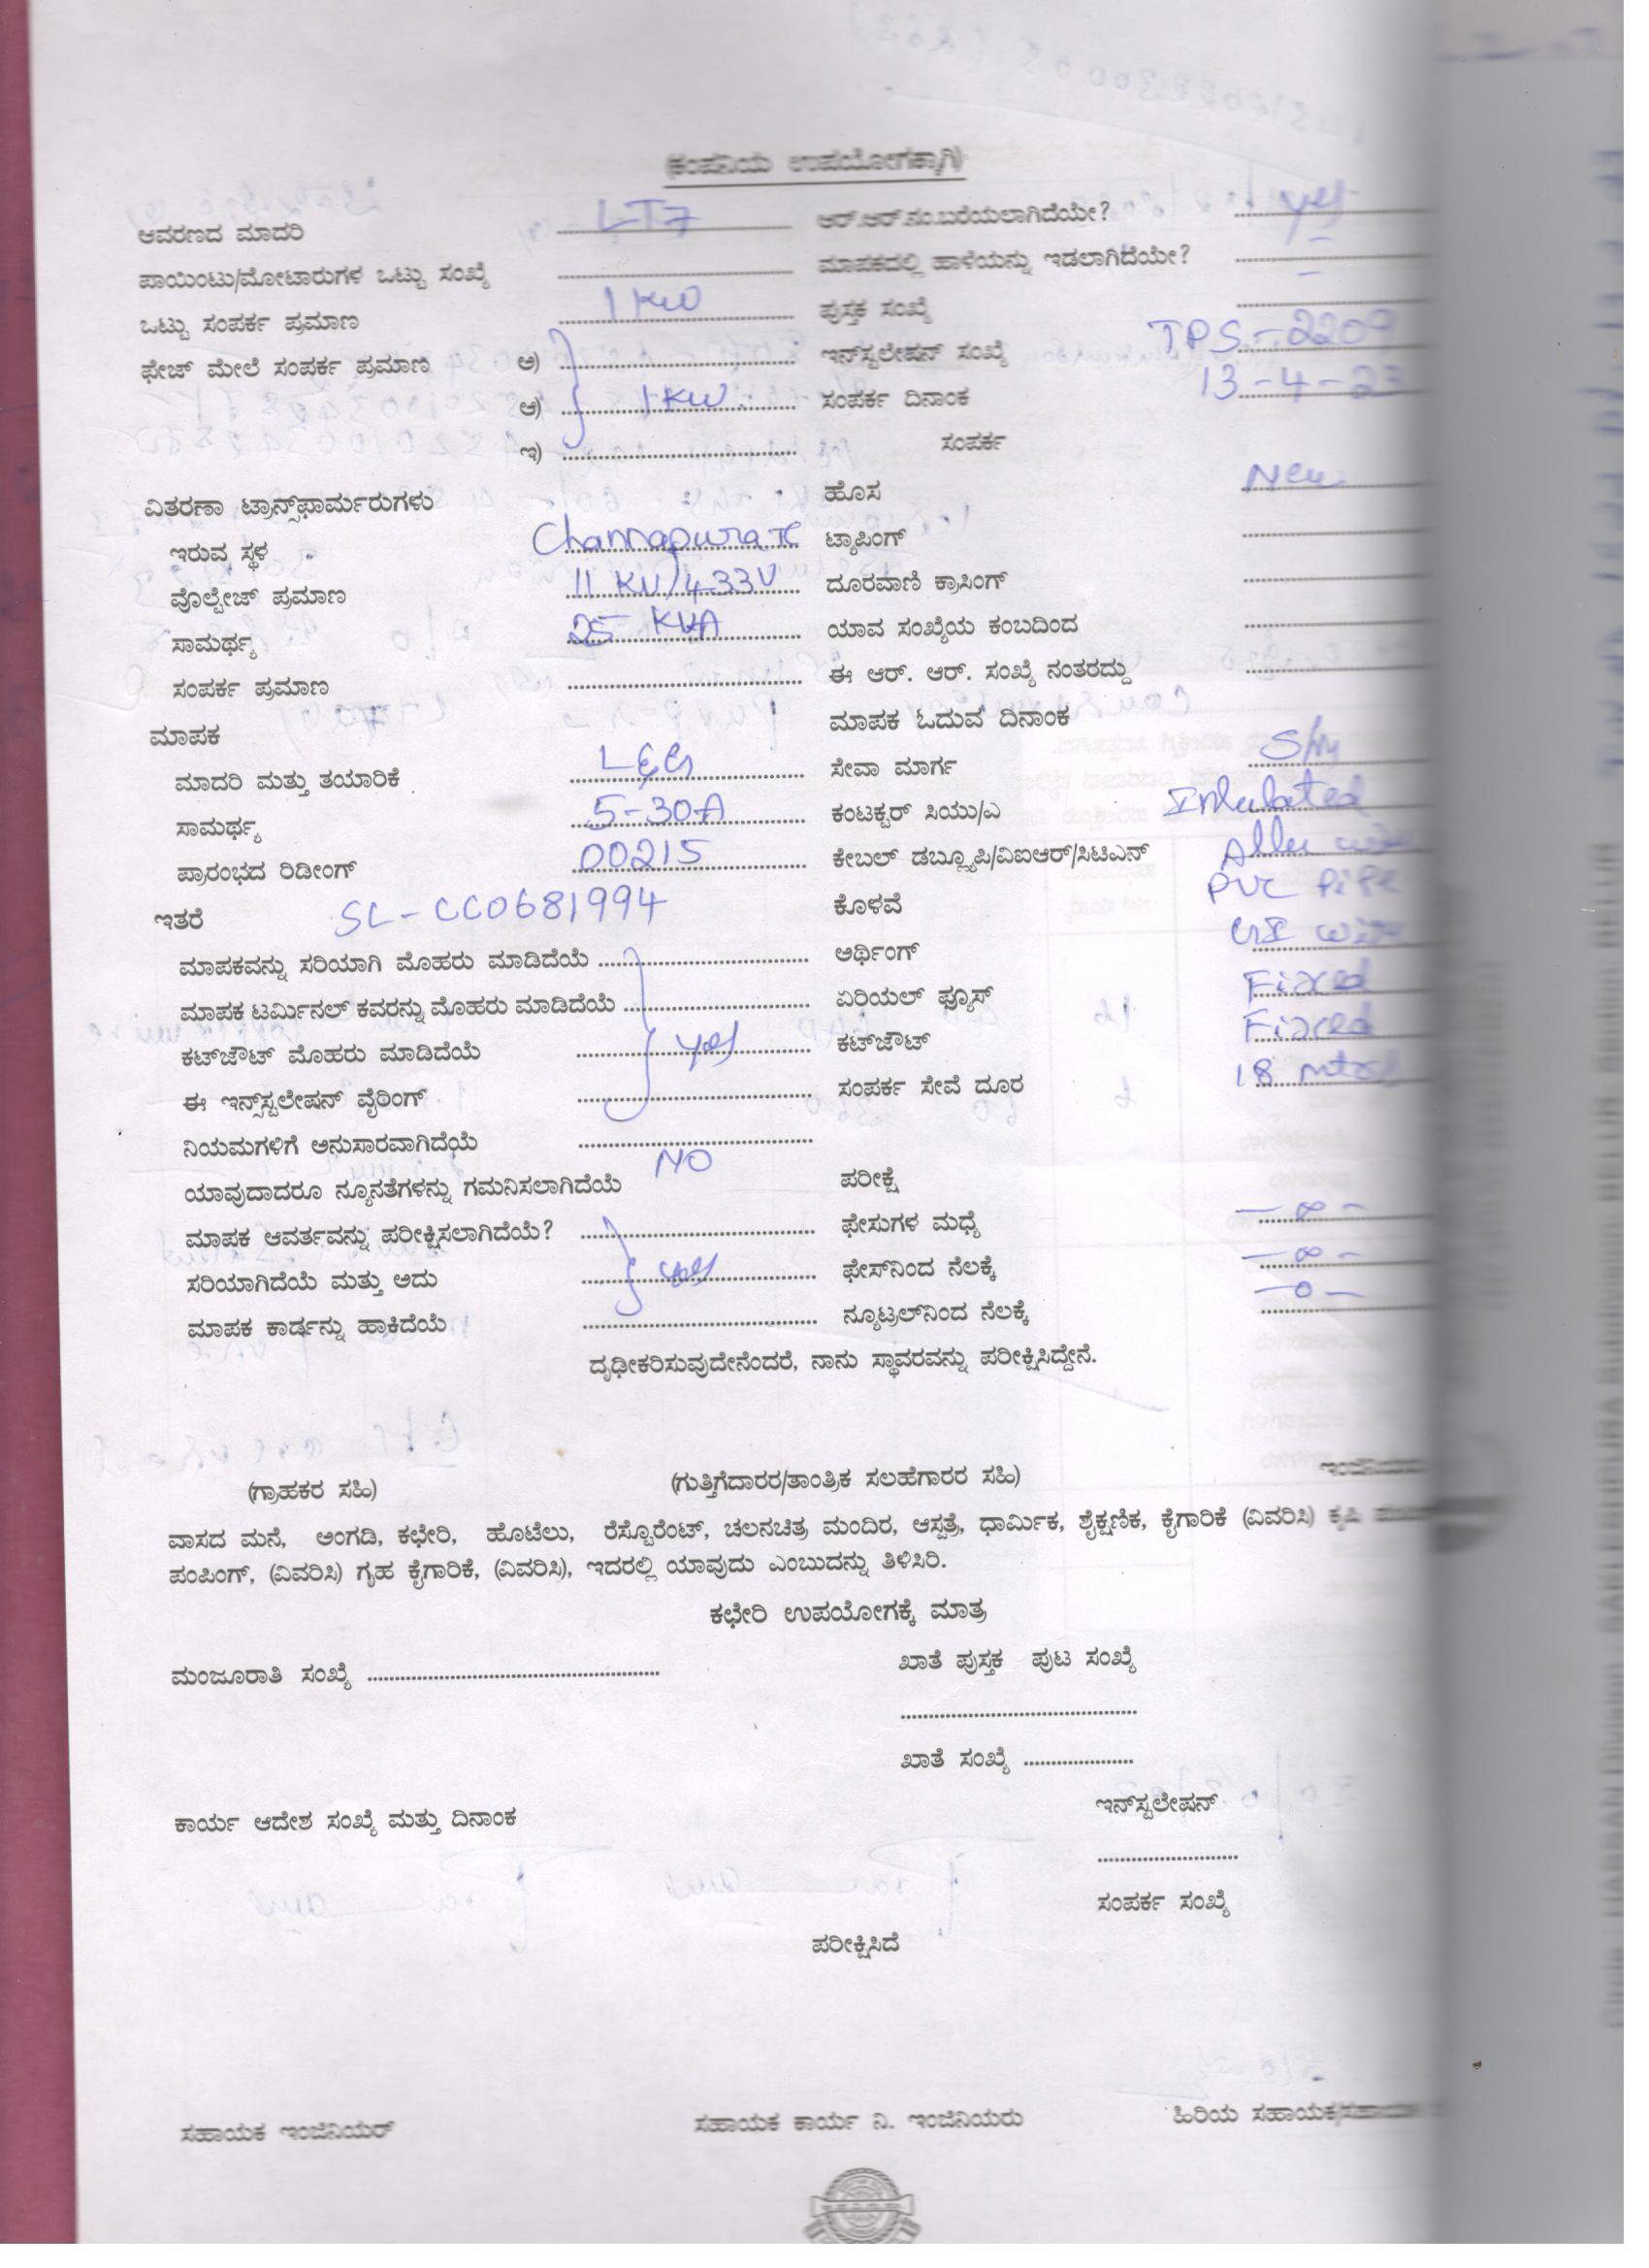 (ಕಂಪನಿಯ ಉಪಯೋಗಕ್ಕಾಗಿ)
ಆವರಣದ ಮಾದರಿ LT7 ಆರ್.ಆರ್.ನಂ.ಬರೆಯಲಾಗಿದೆಯೇ? yes
ಪಾಯಿಂಟು/ಮೋಟಾರುಗಳ ಒಟ್ಟು ಸಂಖ್ಯೆ ಮಾಪಕದಲ್ಲಿ ಹಾಳೆಯನ್ನು ಇಡಲಾಗಿದೆಯೇ? –
ಒಟ್ಟು ಸಂಪರ್ಕ ಪ್ರಮಾಣ 1 KW ಪುಸ್ತಕ ಸಂಖ್ಯೆ –
ಫೇಜ್ ಮೇಲೆ ಸಂಪರ್ಕ ಪ್ರಮಾಣ ಅ) ಇನ್‌ಸ್ಟಲೇಷನ್ ಸಂಖ್ಯೆ TPS-2209
ಆ) 1 KW ಸಂಪರ್ಕ ದಿನಾಂಕ 13-4-23
ಇ) ಸಂಪರ್ಕ
ವಿತರಣಾ ಟ್ರಾನ್ಸ್‌ಫಾರ್ಮರುಗಳು ಹೊಸ New
ಇರುವ ಸ್ಥಳ Channapura TC ಟ್ಯಾಪಿಂಗ್
ವೊಲ್ಟೇಜ್ ಪ್ರಮಾಣ 11 KV/433V ದೂರವಾಣಿ ಕ್ರಾಸಿಂಗ್
ಸಾಮರ್ಥ್ಯ 25 KVA ಯಾವ ಸಂಖ್ಯೆಯ ಕಂಬದಿಂದ
ಸಂಪರ್ಕ ಪ್ರಮಾಣ ಈ ಆರ್. ಆರ್. ಸಂಖ್ಯೆ ನಂತರದ್ದು
ಮಾಪಕ ಮಾಪಕ ಓದುವ ದಿನಾಂಕ
ಮಾದರಿ ಮತ್ತು ತಯಾರಿಕೆ L&G ಸೇವಾ ಮಾರ್ಗ
ಸಾಮರ್ಥ್ಯ 5-30A ಕಂಟಕ್ಟರ್ ಸಿಯು/ಎ
ಪ್ರಾರಂಭದ ರಿಡೀಂಗ್ 00215 ಕೇಬಲ್ ಡಬ್ಲ್ಯೂಪಿ/ವಿಐಆರ್/ಸಿಟಿಎನ್
ಇತರೆ SL-CC0681994 ಕೊಳವೆ PVC Pipe
ಮಾಪಕವನ್ನು ಸರಿಯಾಗಿ ಮೊಹರು ಮಾಡಿದೆಯೆ ಅರ್ಥಿಂಗ್ GI wire
ಮಾಪಕ ಟರ್ಮಿನಲ್ ಕವರನ್ನು ಮೊಹರು ಮಾಡಿದೆಯೆ ಏರಿಯಲ್ ಫ್ಯೂಸ್ Fixed
ಕಟ್‌ಔಟ್ ಮೊಹರು ಮಾಡಿದೆಯೆ yes ಕಟ್‌ಔಟ್ Fixed
ಈ ಇನ್ಸ್‌ಸ್ಟಲೇಷನ್ ವೈರಿಂಗ್ ಸಂಪರ್ಕ ಸೇವೆ ದೂರ 18 mtrs
ನಿಯಮಗಳಿಗೆ ಅನುಸಾರವಾಗಿದೆಯೆ
ಯಾವುದಾದರೂ ನ್ಯೂನತೆಗಳನ್ನು ಗಮನಿಸಲಾಗಿದೆಯೆ NO ಪರೀಕ್ಷೆ
ಮಾಪಕ ಆವರ್ತವನ್ನು ಪರೀಕ್ಷಿಸಲಾಗಿದೆಯೆ? ಫೇಸುಗಳ ಮಧ್ಯೆ – ∞ –
ಸರಿಯಾಗಿದೆಯೆ ಮತ್ತು ಅದು yes ಫೇಸ್‌ನಿಂದ ನೆಲಕ್ಕೆ – ∞ –
ಮಾಪಕ ಕಾರ್ಡನ್ನು ಹಾಕಿದೆಯೆ ನ್ಯೂಟ್ರಲ್‌ನಿಂದ ನೆಲಕ್ಕೆ – 0 –
ದೃಢೀಕರಿಸುವುದೇನೆಂದರೆ, ನಾನು ಸ್ಥಾವರವನ್ನು ಪರೀಕ್ಷಿಸಿದ್ದೇನೆ.
(ಗ್ರಾಹಕರ ಸಹಿ) (ಗುತ್ತಿಗೆದಾರರ/ತಾಂತ್ರಿಕ ಸಲಹೆಗಾರರ ಸಹಿ)
ವಾಸದ ಮನೆ, ಅಂಗಡಿ, ಕಛೇರಿ, ಹೊಟೆಲು, ರೆಸ್ಟೊರೆಂಟ್, ಚಲನಚಿತ್ರ ಮಂದಿರ, ಆಸ್ಪತ್ರೆ, ಧಾರ್ಮಿಕ, ಶೈಕ್ಷಣಿಕ, ಕೈಗಾರಿಕೆ (ವಿವರಿಸಿ) ಕೃಷಿ
ಪಂಪಿಂಗ್, (ವಿವರಿಸಿ) ಗೃಹ ಕೈಗಾರಿಕೆ, (ವಿವರಿಸಿ), ಇದರಲ್ಲಿ ಯಾವುದು ಎಂಬುದನ್ನು ತಿಳಿಸಿರಿ.
ಕಛೇರಿ ಉಪಯೋಗಕ್ಕೆ ಮಾತ್ರ
ಮಂಜೂರಾತಿ ಸಂಖ್ಯೆ ಖಾತೆ ಪುಸ್ತಕ ಪುಟ ಸಂಖ್ಯೆ
ಖಾತೆ ಸಂಖ್ಯೆ
ಇನ್‌ಸ್ಟಲೇಷನ್
ಕಾರ್ಯ ಆದೇಶ ಸಂಖ್ಯೆ ಮತ್ತು ದಿನಾಂಕ
ಸಂಪರ್ಕ ಸಂಖ್ಯೆ
ಪರೀಕ್ಷಿಸಿದೆ
ಸಹಾಯಕ ಇಂಜಿನಿಯರ್ ಸಹಾಯಕ ಕಾರ್ಯ ನಿ. ಇಂಜಿನಿಯರು ಹಿರಿಯ